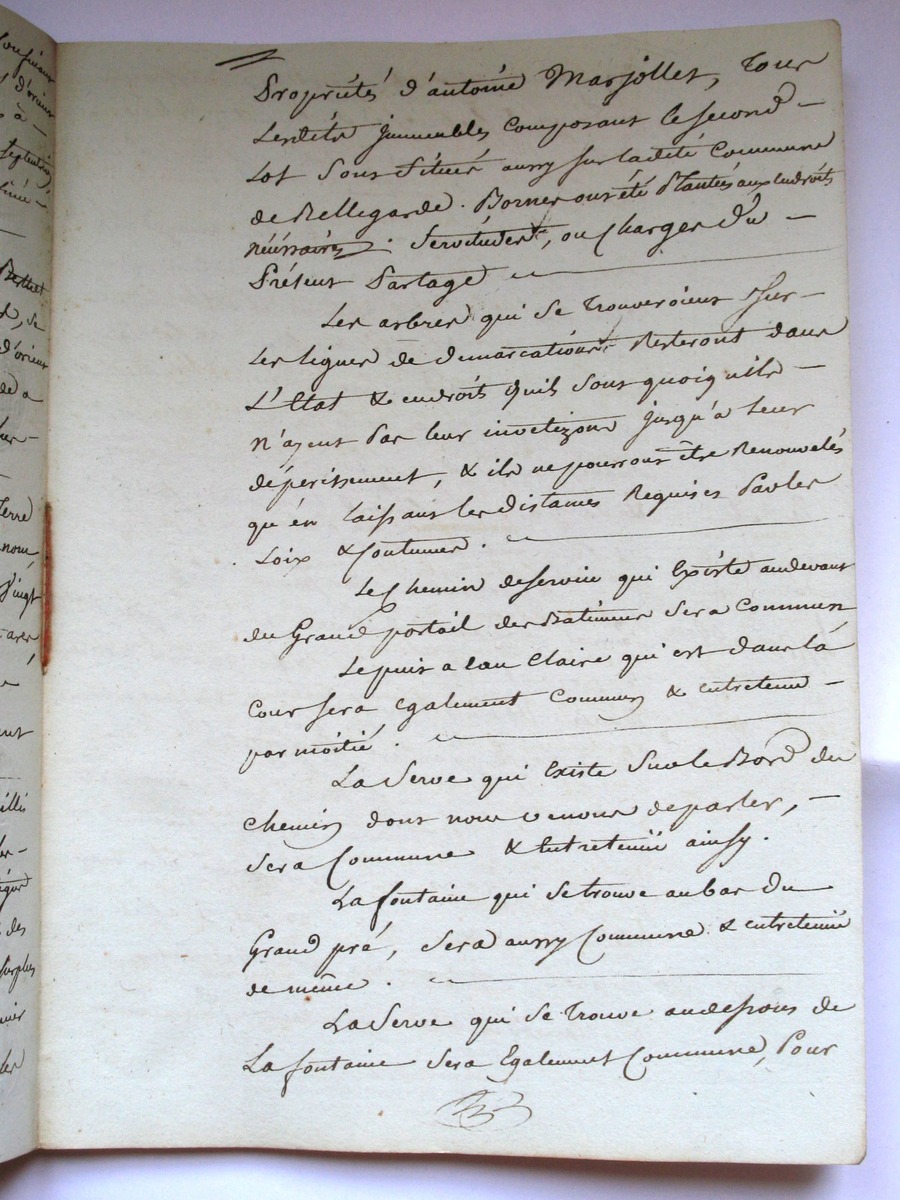 Propriétés d'antoine Marjollet, Tous
Lesdits jmmeubles composant le second
Lot Sont Situés aussy sur ladite Commune
de Bellegarde. Bornes ont été Plantées aux endroits
néssaires. Servitudes, ou Charges du
Présent Partage
Les arbres qui se trouveroient sur
Les lignes de démarcations Resteront dans
L'Etat & endroits quils sont quoiquils
n'ayent Pas leur jusqu'a leur
dépérissement, & ils ne pourront être Renouvelés
qu'en laissant les distances Requises Par les
Loix & Coutumes.
Le Chemin deservice qui Existe audevant
du Grand portail des Batiments Sera Commun
Le puis a Eau Claire qui est dans la
Cour sera Egalement Commun & entretenu
par moitié.
La Serve qui Existe Sur le Bord du
Chemin dont nous venons deparler,
Sera Commune & Entretenüe ainsy.
La fontaine qui se trouve au bas du
Grand pré, Sera aussy Commune & entretenüe
de même.
La Serve qui se trouve audessous de
La fontaine Sera Egalement Commune, Pour